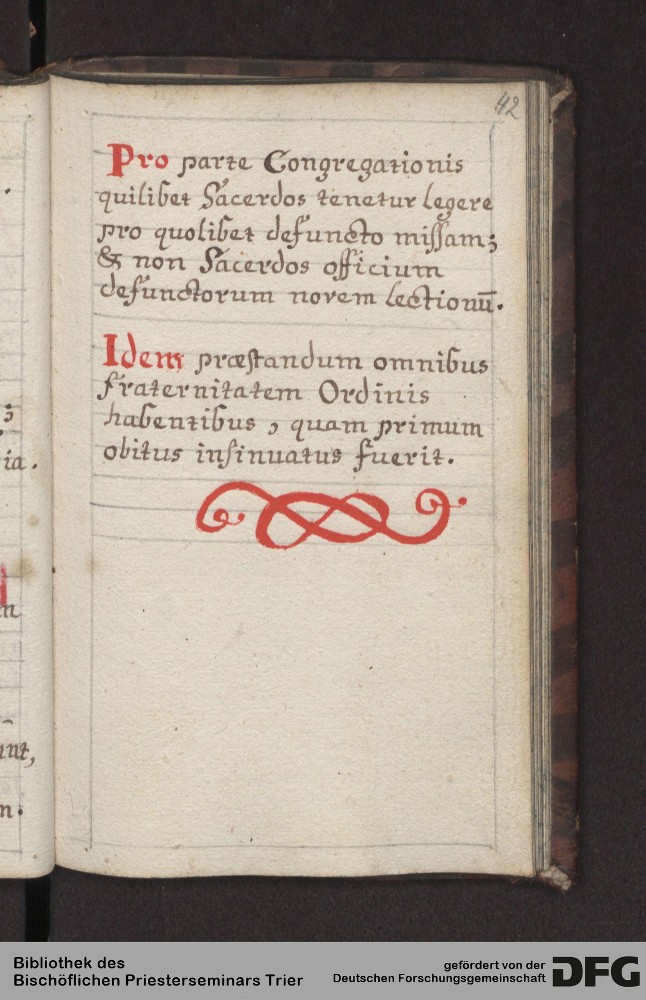 42
Pro parte Congregationis
quilibet Sacerdos tenetur legere
pro quolibet defuncto missam;
& non Sacerdos officium
defunctorum novem lectionū.
Idem præstandum omnibus
fraternitatem Ordinis
habentibus, quam primum
obitus insinuatus fuerit.
ia.
unt,
Bibliothek des
Bischöflichen Priesterseminars Trier
gefördert von der
Deutschen Forschungsgemeinschaft
DFG